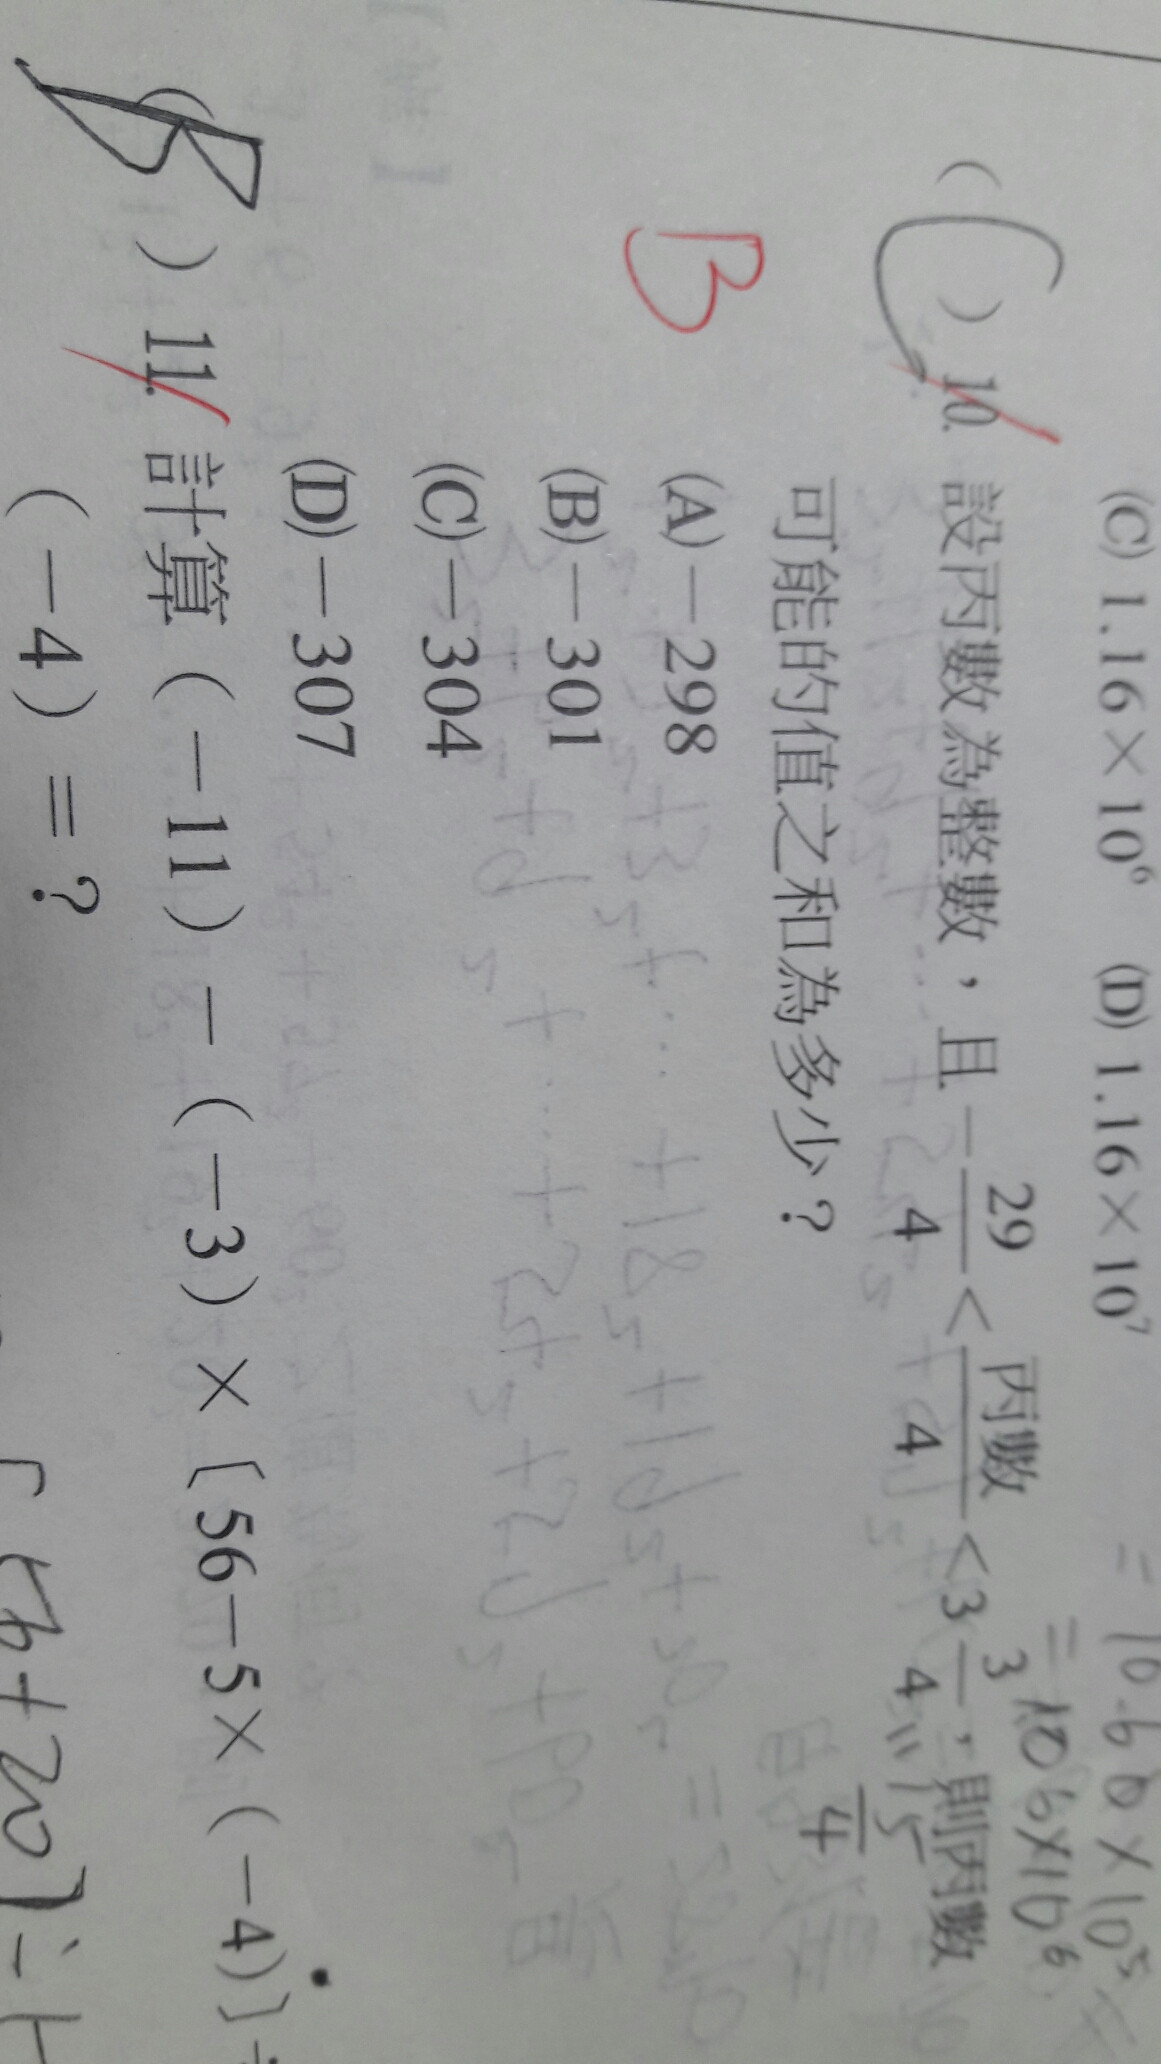 (C) 1.16×10⁶ (D) 1.16×10⁷
= 10.6 6 × 10⁵
= 106×10⁶
( C ) 10. 設丙數為整數，且 −29/4 < 丙數/4 < 3 3/4，則丙數
可能的值之和為多少？
15/4
B
(A)−298
(B)−301
(C)−304
(D)−307
( B ) 11. 計算（−11）−（−3）×〔56−5×（−4)〕÷
（−4）=？
[56+20]÷